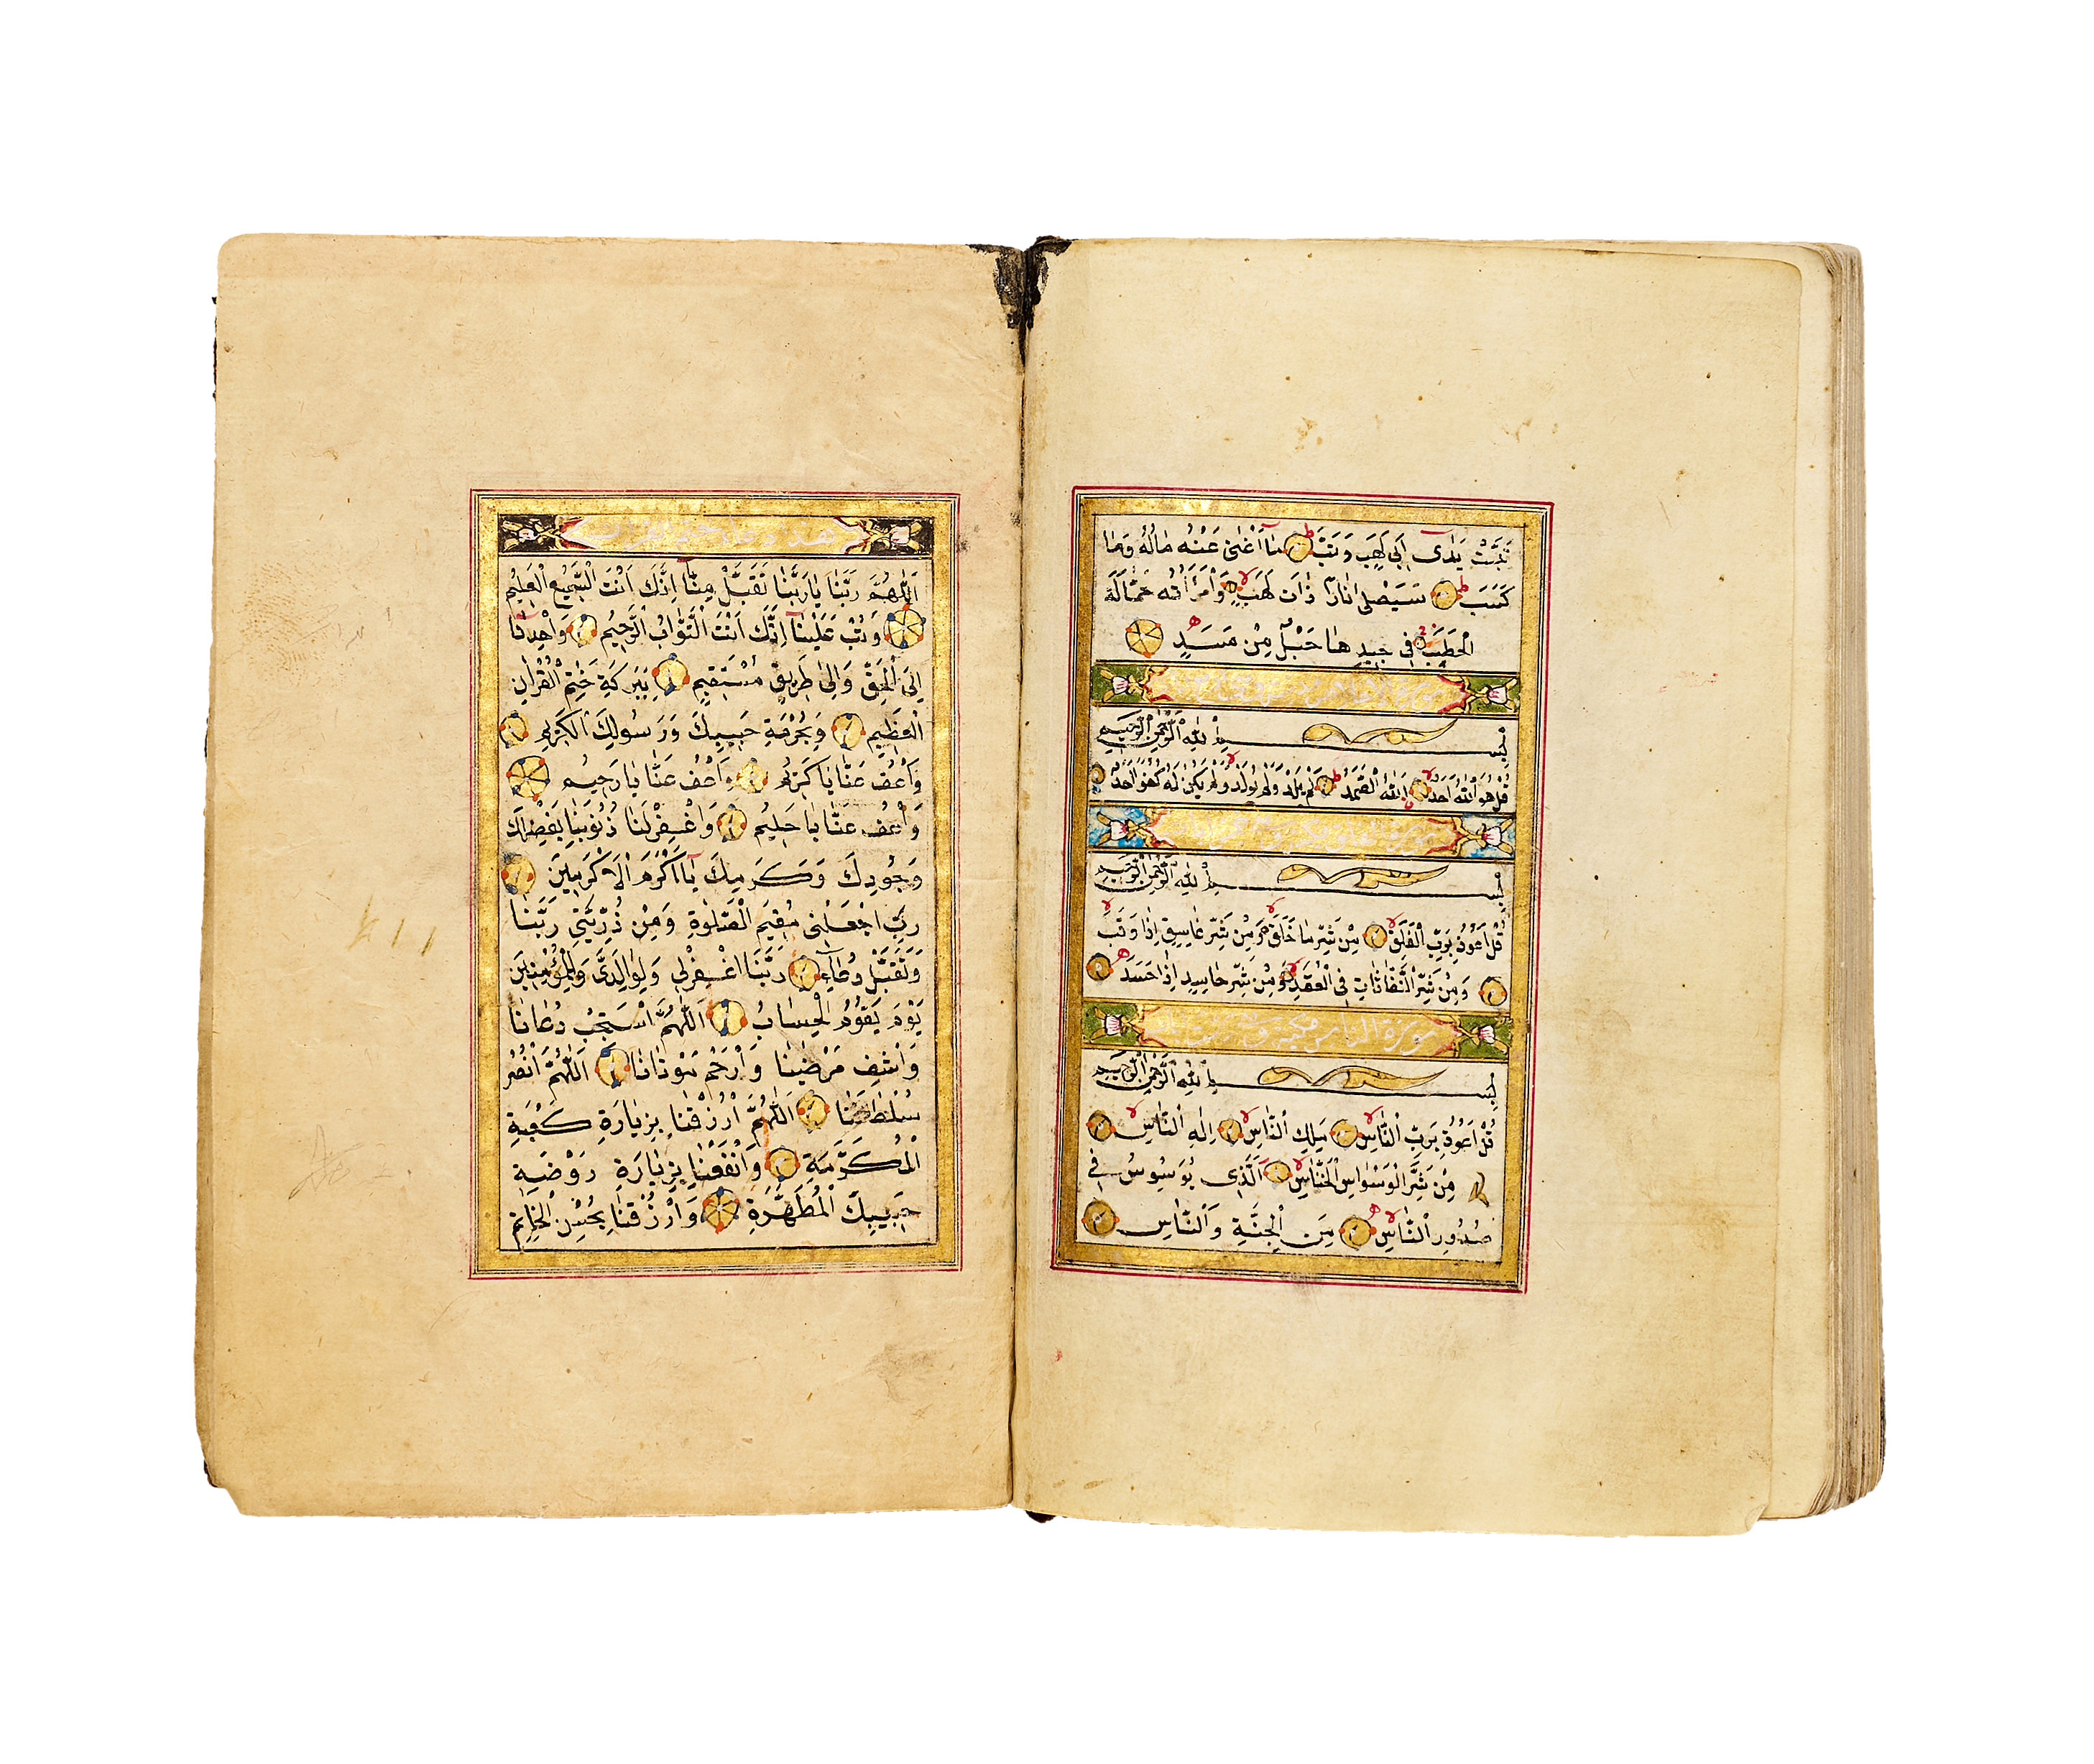 تَبَّتْ يَدَٓا اَبِى لَهَبٍ وَتَبَّ مَٓا اَغْنٰى عَنْهُ مَالُهُ وَمَا
كَسَبَ سَيَصْلٰى نَارًا ذَاتَ لَهَبٍ وَامْرَاَتُهُ حَمَّالَةَ
الْحَطَبِ فِى جِيدِهَا حَبْلٌ مِنْ مَسَدٍ
بِسْمِ اللهِ الرَّحْمٰنِ الرَّحِيمِ
قُلْ هُوَ اللهُ اَحَدٌ اَللهُ الصَّمَدُ لَمْ يَلِدْ وَلَمْ يُولَدْ وَلَمْ يَكُنْ لَهُ كُفُوًا اَحَدٌ
بِسْمِ اللهِ الرَّحْمٰنِ الرَّحِيمِ
قُلْ اَعُوذُ بِرَبِّ الْفَلَقِ مِنْ شَرِّ مَا خَلَقَ وَمِنْ شَرِّ غَاسِقٍ اِذَا وَقَبَ
وَمِنْ شَرِّ النَّفَّاثَاتِ فِى الْعُقَدِ وَمِنْ شَرِّ حَاسِدٍ اِذَا حَسَدَ
سورة الناس
بِسْمِ اللهِ الرَّحْمٰنِ الرَّحِيمِ
قُلْ اَعُوذُ بِرَبِّ النَّاسِ مَلِكِ النَّاسِ اِلٰهِ النَّاسِ
مِنْ شَرِّ الْوَسْوَاسِ الْخَنَّاسِ اَلَّذِى يُوَسْوِسُ فِى
صُدُورِ النَّاسِ مِنَ الْجِنَّةِ وَالنَّاسِ
اَللّٰهُمَّ رَبَّنَا يَا رَبَّنَا تَقَبَّلْ مِنَّٓا اِنَّكَ اَنْتَ السَّمِيعُ الْعَلِيمُ
وَتُبْ عَلَيْنَٓا اِنَّكَ اَنْتَ التَّوَّابُ الرَّحِيمُ وَاهْدِنَا
اِلَى الْحَقِّ وَاِلٰى طَرِيقٍ مُسْتَقِيمٍ بِبَرَكَةِ خَتْمِ الْقُرْاٰنِ
الْعَظِيمِ وَبِحُرْمَةِ حَبِيبِكَ وَرَسُولِكَ الْكَرِيمِ
وَاعْفُ عَنَّا يَا كَرِيمُ وَاعْفُ عَنَّا يَا رَحِيمُ
وَاعْفُ عَنَّا يَا حَلِيمُ وَاغْفِرْ لَنَا ذُنُوبَنَا بِفَضْلِكَ
وَجُودِكَ وَكَرَمِكَ يَٓا اَكْرَمَ الْاَكْرَمِينَ
رَبِّ اجْعَلْنِى مُقِيمَ الصَّلٰوةِ وَمِنْ ذُرِّيَّتِى رَبَّنَا
وَتَقَبَّلْ دُعَٓاءِ رَبَّنَا اغْفِرْ لِى وَلِوَالِدَىَّ وَلِلْمُؤْمِنِينَ
يَوْمَ يَقُومُ الْحِسَابُ اَللّٰهُمَّ اسْتَجِبْ دُعَانَا
وَاشْفِ مَرْضَينَا وَارْحَمْ مَوْتَانَا اَللّٰهُمَّ انْصُرْ
سُلْطَانَنَا اَللّٰهُمَّ ارْزُقْنَا بِزِيَارَةِ كَعْبَةِ
الْمُكَرَّمَةِ وَانْفَعْنَا بِزِيَارَةِ رَوْضَةِ
حَبِيبِكَ الْمُطَهَّرَةِ وَارْزُقْنَا بِحُسْنِ الْخَاتِمِ